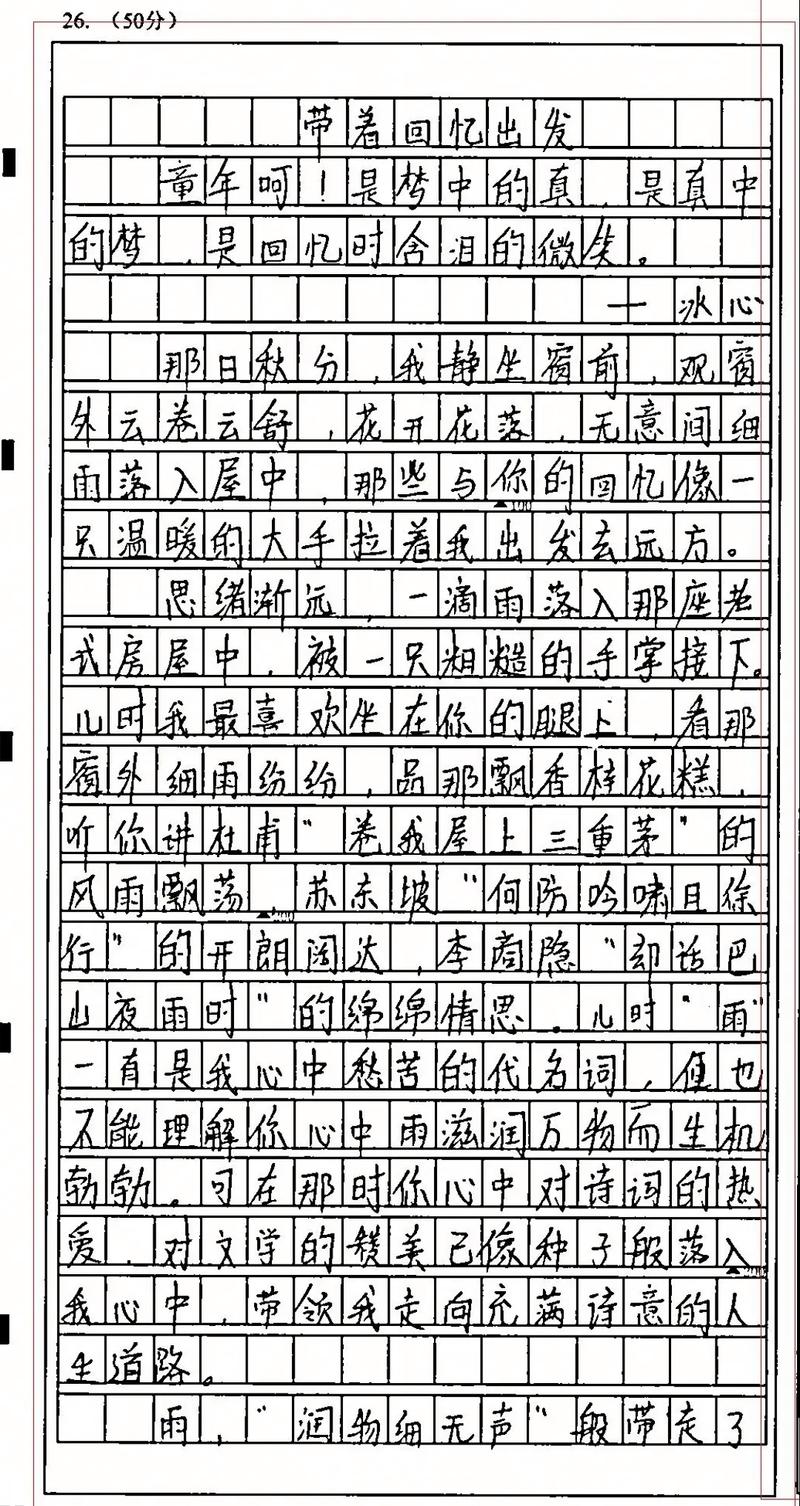 26. （50分）
带着回忆出发
童年呵！是梦中的真，是真中
的梦，是回忆时含泪的微笑。
—冰心
那日秋分，我静坐窗前，观窗
外云卷云舒，花开花落，无意间细
雨落入屋中，那些与你的回忆像一
▲100
只温暖的大手拉着我出发去远方。
思绪渐远，一滴雨落入那座老
式房屋中，被一只粗糙的手掌接下。
儿时我最喜欢坐在你的腿上，看那
窗外细雨纷纷，品那飘香桂花糕，
听你讲杜甫“卷我屋上三重茅”的
风雨飘荡，苏东坡“何防吟啸且徐
▲200
行”的开朗阔达，李商隐“却话巴
山夜雨时”的绵绵情思。儿时“雨”
一直是我心中愁苦的代名词，便也
不能理解你心中雨滋润万物而生机
勃勃。可在那时你心中对诗词的热
爱，对文学的赞美已像种子般落入
▲300
我心中，带领我走向充满诗意的人
生道路。
雨，“润物细无声”般带走了